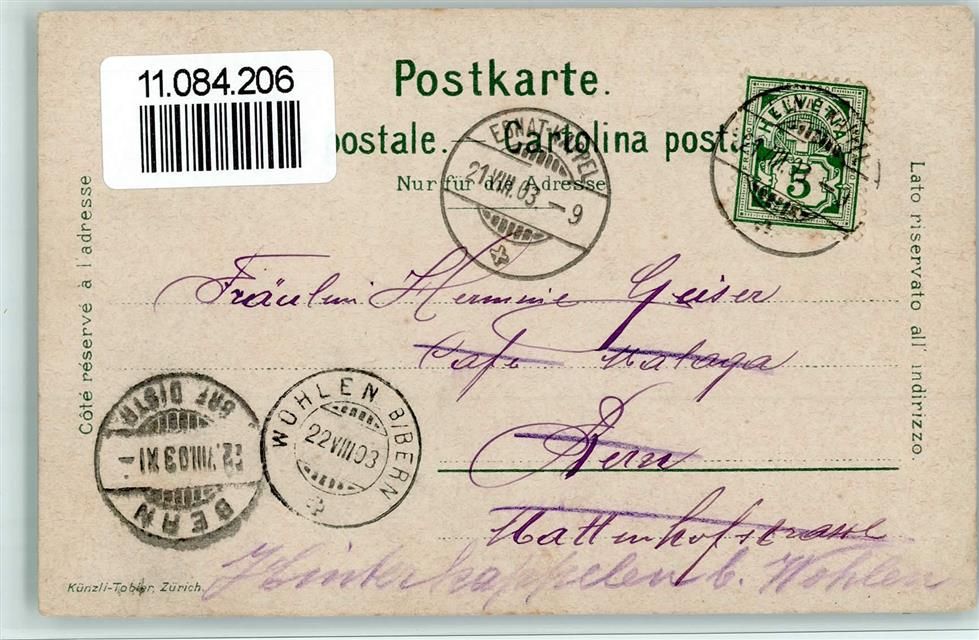 11.084.206
Postkarte.
postale. — Cartolina posta
Nur für die Adresse
Côté réservé à l'adresse
Lato riservato all' indirizzo.
HELVETIA
5
EBNAT-KAPPEL
21.VIII.03.–9
Fräulein Hermine Geiser
Café Malaga
Bern
Mattenhofstrasse
Hinterkappelen b. Wohlen
WOHLEN B/BERN
22 VIII 03
BERN
22.VIII.03.XI
BRF. DISTR.
Künzli-Tobler, Zürich.